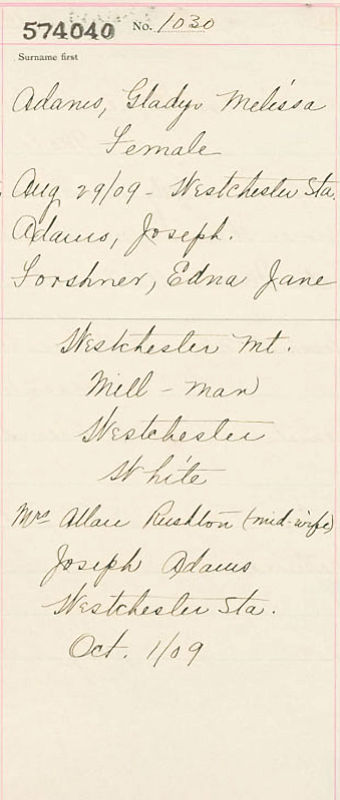 574040 No. 1030
Surname first
Adams, Gladys Melissa
Female
Aug 29/09 - Westchester Sta.
Adams, Joseph.
Forshner, Edna Jane
Westchester Mt.
Mill - man
Westchester
White
Mrs Allan Rushton (mid-wife)
Joseph Adams
Westchester Sta.
Oct. 1/09